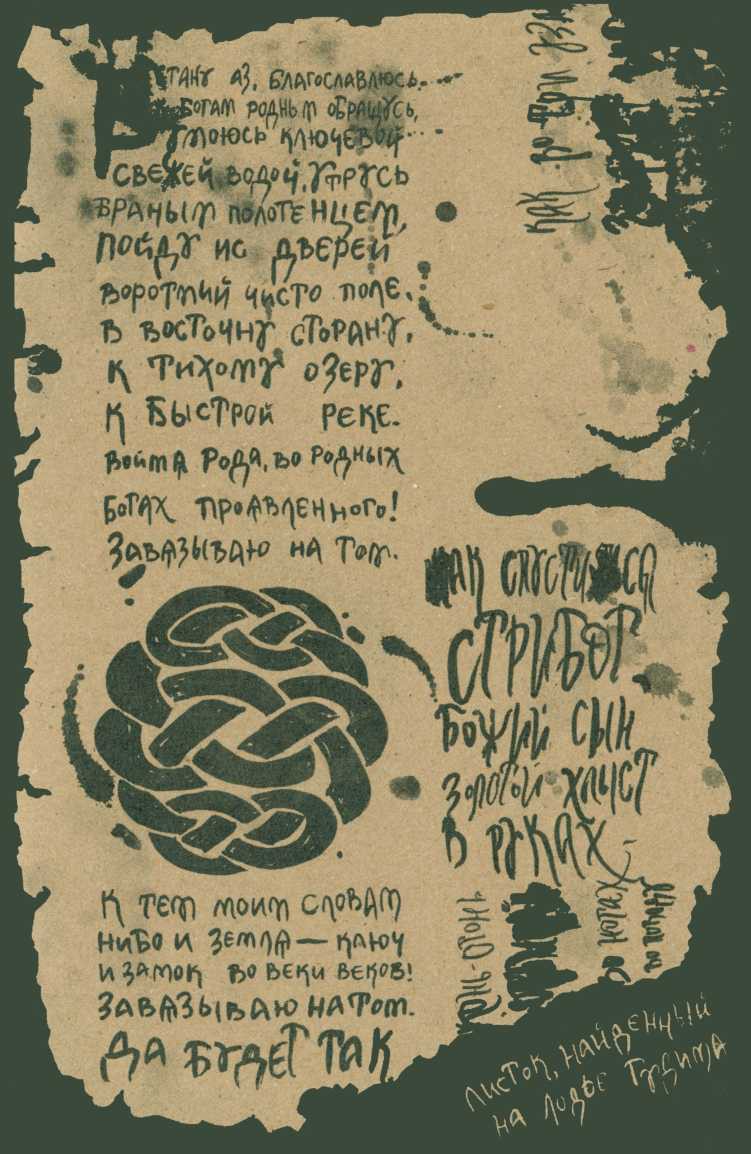 Встану аз, благославлюсь.
богам родным обращусь,
умоюсь ключевой
свежей водой, утрусь
браным полотенцем,
пойду ис дверей
воротмий чисто поле.
в восточну сторану,
к тихому озеру,
к быстрой реке.
войма Рода, во родных
богах проявленного!
Завязываю на том.
к тем моим словам
нибо и земля — ключ
и замок во веки веков!
Завязываю на том.
Да будет так
как во
как спустился
Стрибог,
божий сын
золотой хлыст
в руках
огонь
листок, найденный
на лодье Гудима